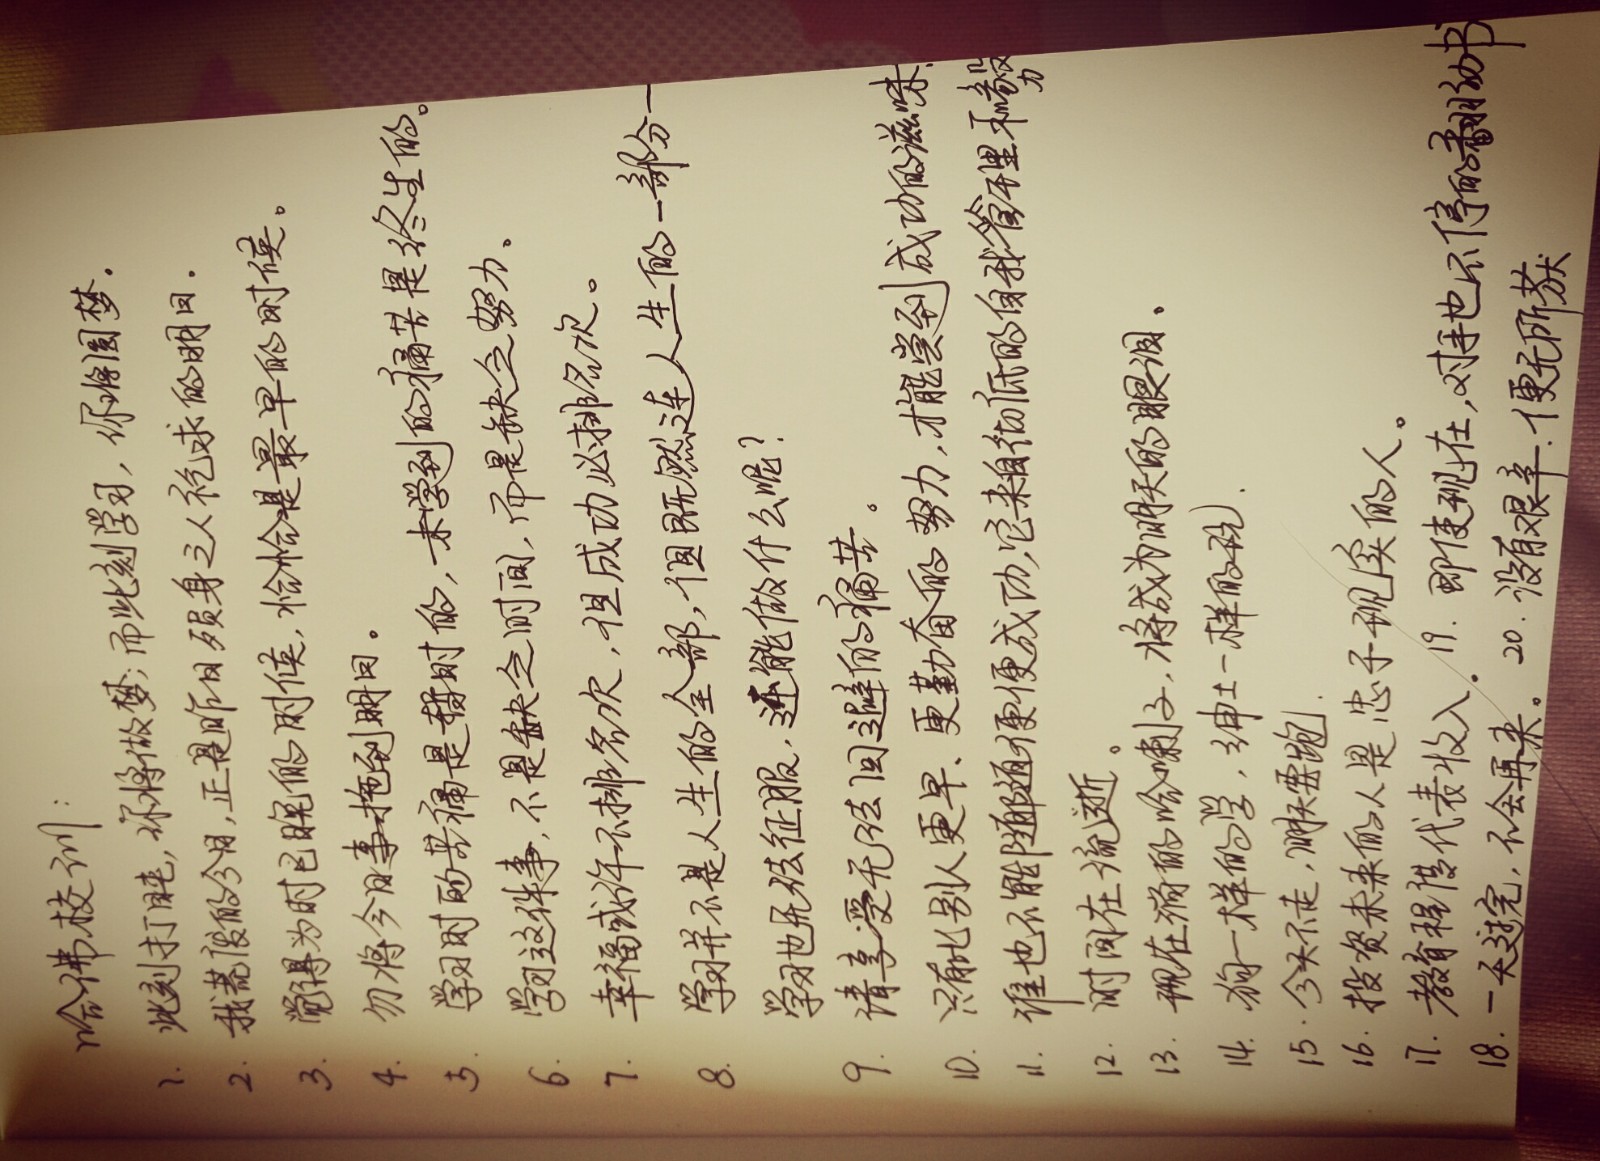 哈佛校训:
1. 此刻打盹,你将做梦;而此刻学习,你将圆梦.
2. 我荒废的今日,正是昨日殒身之人祈求的明日.
3. 觉得为时已晚的时候,恰恰是最早的时候。
4. 勿将今日事拖到明日。
5. 学习时的苦痛是暂时的,未学到的痛苦是终生的。
6. 学习这件事,不是缺乏时间,而是缺乏努力.
7. 幸福或许不排名次,但成功必排名次。
8. 学习并不是人生的全部,但既然连人生的一部分一
学习也无法征服,还能做什么呢?
9. 请享受无法回避的痛苦。
10. 只有比别人更早、更勤奋的努力,才能尝到成功的滋味.
11. 谁也不能随随便便成功,它来自彻底的自我管理和毅力
12. 时间在流逝。
13. 现在淌的哈喇子,将成为明天的眼泪.
14. 狗一样的学,绅士一样的玩.
15. 今天不走,明天要跑.
16. 投资未来的人是忠于现实的人。
17. 教育程度代表收入. 19. 即使现在,对手也不停的翻动书
18. 一天过完,不会再来。 20. 没有艰辛.便无所获